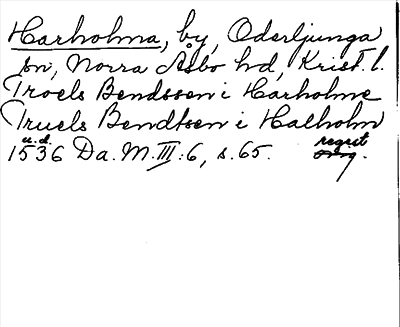 Harholma, by, Oderljunga
sn, Norra Åsbo hd, Krist. l.
Troels Bendssen i Harholme
Truels Bendtsen i Halholm
u.d. regest
1536 Da. M. III: 6, s. 65. orig.